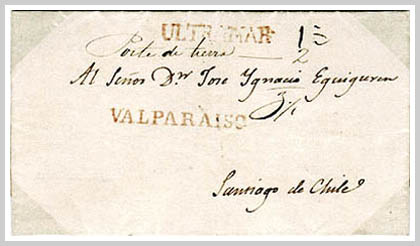 ULTRAMAR
Porte de tierra 1
2
Al Señor Dn Jose Ygnacio Eguiguren
3
VALPARAISO
Santiago de Chile